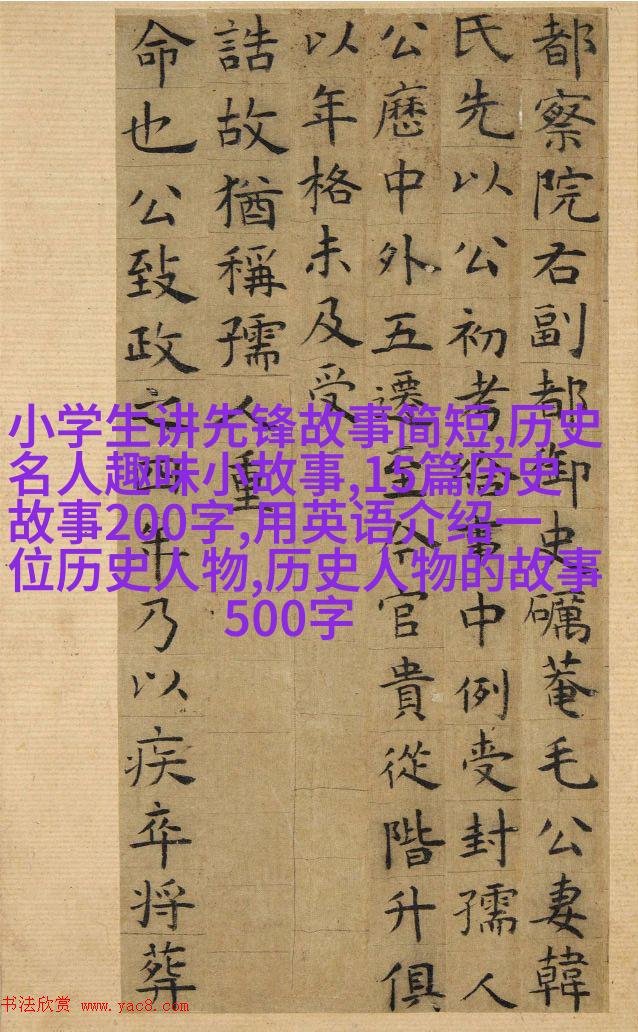 都察院右副都御史礪菴毛公妻韓
氏先以公初考給事中例受封孺人
公歷中外五遷至今官貴從階升俱
以年格未及受
誥故猶稱孺人重
命也公致政之四年乃以疾卒将葬
小学生讲先锋故事简短,历史
名人趣味小故事,15篇历史
故事200字,用英语介绍一
位历史人物,历史人物的故事
500字
书法欣赏 www.yac8.com